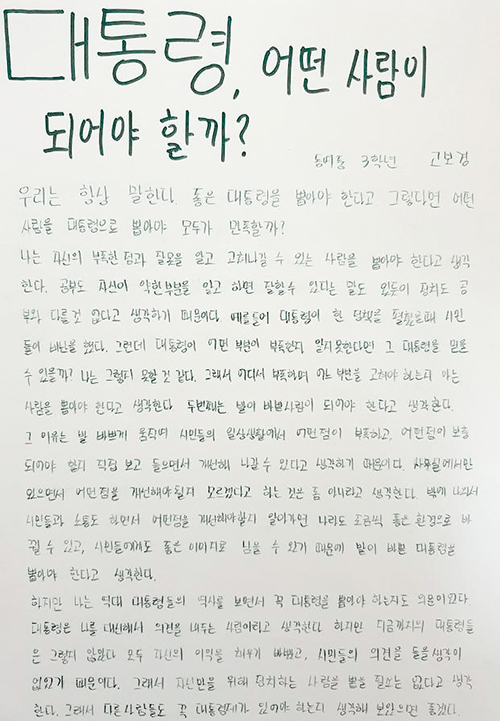 대통령, 어떤 사람이
되어야 할까?
3학년 고보경
우리는 항상 말한다. 좋은 대통령을 뽑아야 한다고 그렇다면 어떤
사람을 대통령으로 뽑아야 모두가 만족할까?
나는 자신의 부족한 점과 잘못을 알고 고쳐나갈 수 있는 사람을 뽑아야 한다고 생각
한다. 공부도 자신이 약한부분을 알고 하면 잘할수 있다는 말도 있듯이 정치도 공
부와 다를 것 없다고 생각하기 때문이다. 예를들어 대통령이 한 정책을 펼쳤을때 시민
들이 비난을 했다. 그런데 대통령이 어떤 부분이 부족한지 알지못한다면 그 대통령을 믿을
수 있을까? 나는 그렇지 못할 것 같다. 그래서 어디서 부족하며 어느 부분을 고쳐야 하는지 아는
사람을 뽑아야 한다고 생각한다. 두번째는 발이 바쁜사람이 되어야 한다고 생각한다.
그 이유는 발 바쁘게 움직여 시민들의 일상생활에서 어떤점이 부족하고, 어떤점이 보충
되어야 할지 직접 보고 들으면서 개선해 나갈 수 있다고 생각하기 때문이다. 사무실에서만
있으면서 어떤점을 개선해야 될지 모르겠다고 하는 것은 좀 아니라고 생각한다. 밖에 나가서
시민들과 소통도 하면서 어떤점을 개선해야할지 알아가면 나라도 조금씩 좋은 환경으로 바
뀔 수 있고, 시민들에게도 좋은 이미지로 남을 수 있기 때문에 발이 바쁜 대통령을
뽑아야 한다고 생각한다.
하지만 나는 역대 대통령들의 역사를 보면서 꼭 대통령을 뽑아야 하는지도 의문이었다
대통령은 나를 대신해서 의견을 내주는 사람이라고 생각한다 하지만 지금까지의 대통령들
은 그렇지 않았다 모두 자신의 이익을 채우기 바빴고, 시민들의 의견을 들을 생각이
없었기 때문이다. 그래서 자신만을 위해 정치하는 사람을 뽑을 필요는 없다고 생각
한다. 그래서 다른사람들도 꼭 대통령제가 있어야 하는지 생각해 보았으면 좋겠다.